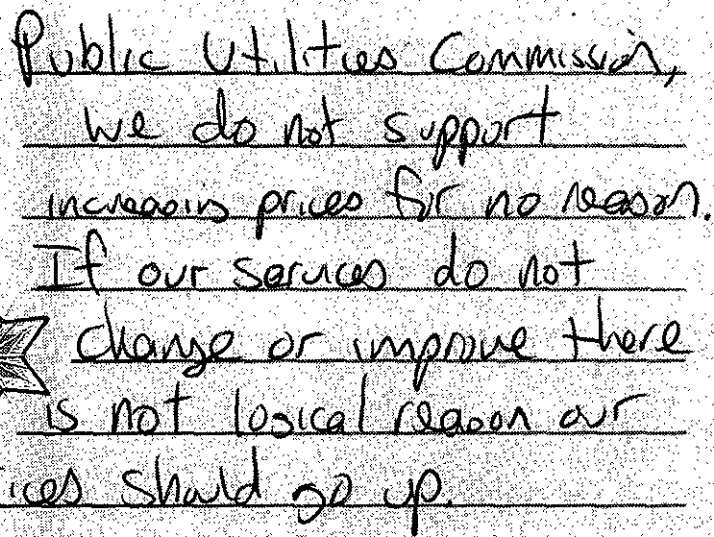 Public Utilities Commission,
We do not support
increasing prices for no reason.
If our services do not
change or improve there
is not logical reason our
ices should go up.